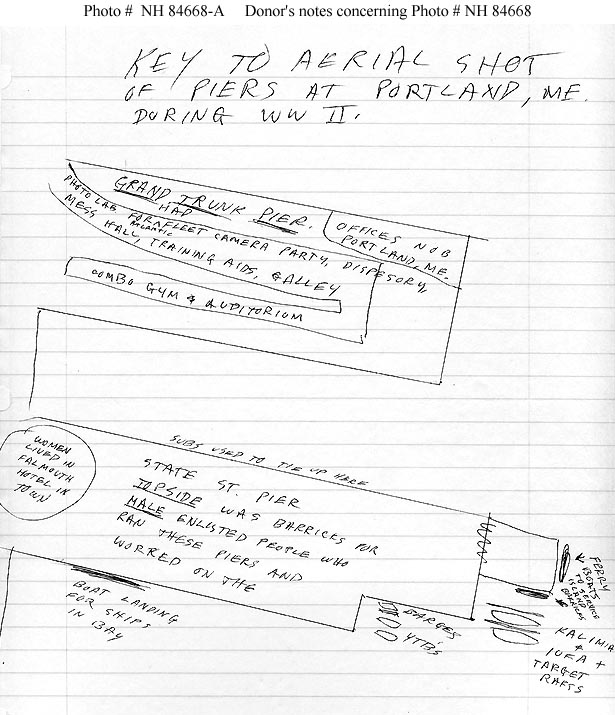 Photo # NH 84668-A Donor's notes concerning Photo # NH 84668
KEY TO AERIAL SHOT
OF PIERS AT PORTLAND, ME.
DURING WW II.
GRAND TRUNK PIER.
HAD
OFFICES NOB
PORTLAND, ME.
PHOTO LAB FOR FLEET CAMERA PARTY, DISPESORY,
Atlantic
MESS HALL, TRAINING AIDS, GALLEY
COMBO GYM & AUDITORIUM
SUBS USED TO TIE UP HERE
WOMEN
LIVED IN
FALMOUTH
HOTEL IN
TOWN
STATE ST. PIER
TOPSIDE WAS BARRICKS FOR
MALE ENLISTED PEOPLE WHO
RAN THESE PIERS AND
WORRED ON THE
BOAT LANDING
FOR SHIPS
IN BAY
BARGES
YTB'S
FERRY
BOATS
TO SERVICE
ISLAND
BARRICKS
KALIMIA
+
IUFA +
TARGET
RAFTS